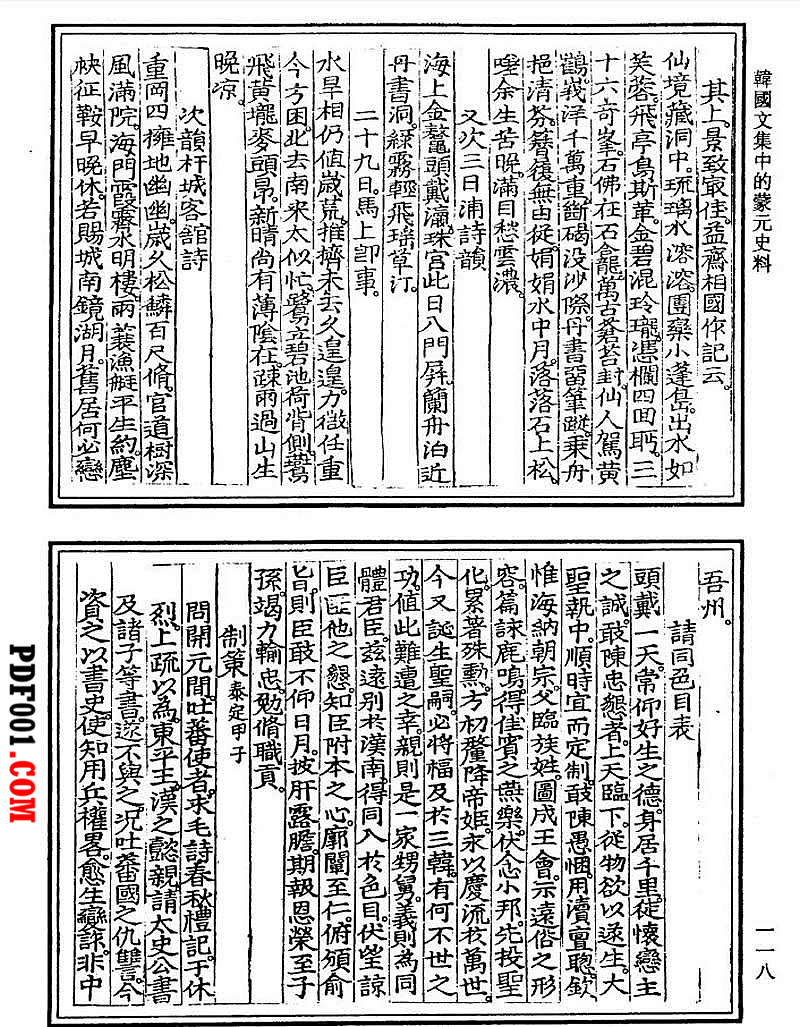 韓國文集中的蒙元史料
其上。景致最佳。益齋相國作記云。
仙境藏洞中。琉璃水溶溶。團欒小蓬島。出水如
芙蓉。飛亭鳥斯革。金碧混玲瓏。憑欄四回眄。三
十六奇峯。石佛在石龕。萬古蒼苔封。仙人駕黃
鶴。峩洋千萬重。斷碣没沙際。丹書留筆蹤。乘舟
挹清芬。簪後無由從。娟娟水中月。落落石上松。
嗟余生苦晚。滿目愁雲濃。
又次三日浦詩韻
海上金鼇頭戴瀛。珠宮此日八門屏。蘭舟泊近
丹書洞。綠霧輕飛瑶草汀。
二十九日。馬上卽事。
水旱相仍値歲荒。推擠未去久遑遑。力微任重
今方困。北去南來太似忙。鷺立碧池荷背側。鸎
飛黃壠麥頭昂。新晴尚有薄陰在。疎雨過山生
晚凉。
次韻杆城客舘詩
重岡四擁地幽幽。歲久松鱗百尺脩。官道樹深
風滿院。海門霞霽水明樓。雨蓑漁艇平生約。塵
鞅征鞍早晚休。若賜城南鏡湖月。舊居何必戀
吾州。
請同色目表
頭戴一天。常仰好生之德。身居千里。徒懷戀主
之誠。敢陳忠懇者。上天臨下。從物欲以遂生。大
聖執中。順時宜而定制。敢陳愚悃。用瀆亶聰。欽
惟海納朝宗。父臨族姓。圖成王會。示遠俗之形
容。篇詠鹿鳴。得佳賓之燕樂。伏念小邦。先投聖
化。累著殊勳。方初釐降帝姬。永以慶流於萬世。
今又誕生聖嗣。必將福及於三韓。有何不世之
功。値此難遭之幸。親則是一家甥舅。義則為同
體君臣。玆遠別於漢南。得同入於色目。伏望諒
臣叵他之懇。知臣附本之心。廓闡至仁。俯頒俞
旨。則臣敢不仰日月。披肝露膽。期報恩榮。至子
孫。竭力輸忠。勉脩職貢。
制策 泰定甲子
問開元間。吐蕃使者。求毛詩春秋禮記。于休
烈。上疏以為。東平王。漢之懿親。請太史公書
及諸子等書。遂不與之。况吐蕃國之仇讐。今
資之以書史。使知用兵權畧。愈生變詐。非中
一一八
PDF001.COM